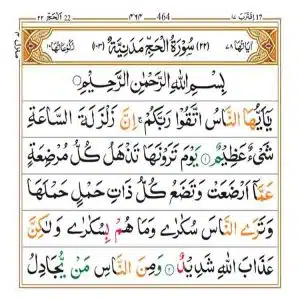 اقترب ١٧ 464 ٤٦٤ الحج ٢٢
اٰيَاتُهَا ٧٨ (٢٢) سُوْرَةُ الْحَجِّ مَدَنِيَّةٌ (١٠٣) رُكُوْعَاتُهَا ١٠
بِسْمِ اللّٰهِ الرَّحْمٰنِ الرَّحِيْمِ
يٰٓاَيُّهَا النَّاسُ اتَّقُوْا رَبَّكُمْ ۚ اِنَّ زَلْزَلَةَ السَّاعَةِ
شَىْءٌ عَظِيْمٌ ۝١ يَوْمَ تَرَوْنَهَا تَذْهَلُ كُلُّ مُرْضِعَةٍ
عَمَّآ اَرْضَعَتْ وَتَضَعُ كُلُّ ذَاتِ حَمْلٍ حَمْلَهَا
وَتَرَى النَّاسَ سُكٰرٰى وَمَا هُمْ بِسُكٰرٰى وَلٰكِنَّ
عَذَابَ اللّٰهِ شَدِيْدٌ ۝٢ وَمِنَ النَّاسِ مَنْ يُّجَادِلُ